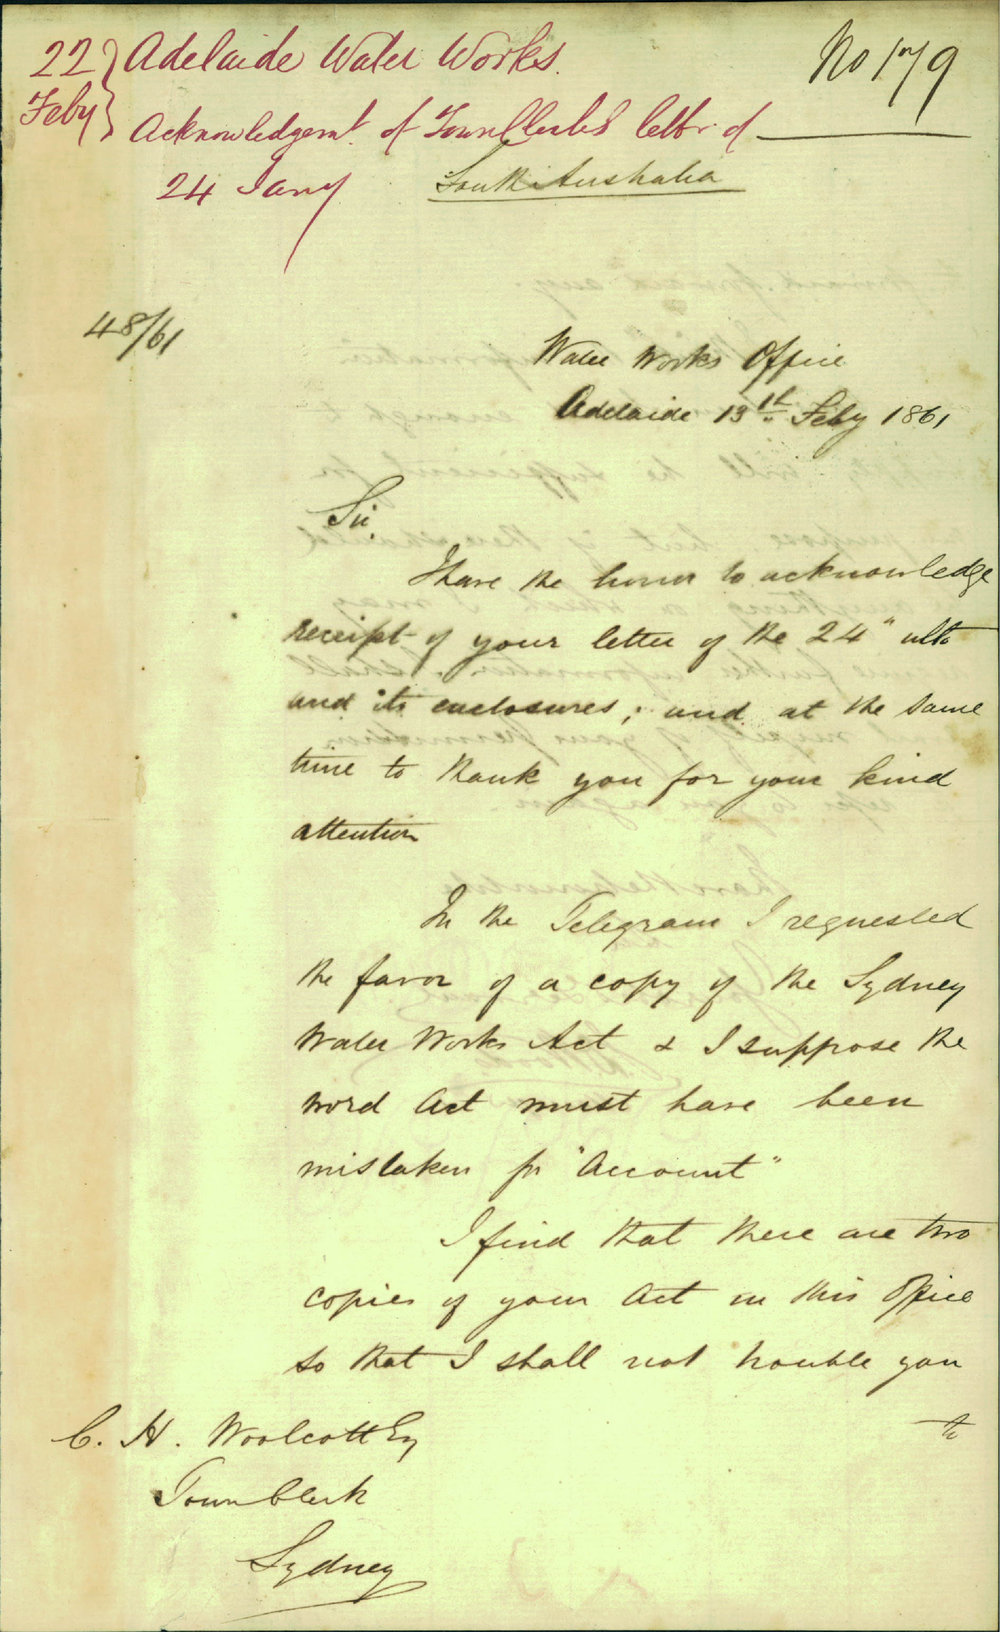 22 Feby } Adelaide Water Works.
Acknowledgemt. of Town Clerks letter of
24 Jany
No 179
South Australia
48/61
Water Works Office
Adelaide 13th Feby 1861
Sir
I have the honor to acknowledge
receipt of your letter of the 24" ulto
and its enclosures; and at the same
time to thank you for your kind
attention
In the Telegram I requested
the favor of a copy of the Sydney
Water Works Act & I suppose the
word Act must have been
mistaken for "Account"
I find that there are two
copies of your Act in this Office
so that I shall not trouble you
to
C. H. Woolcott Esq
Town Clerk
Sydney